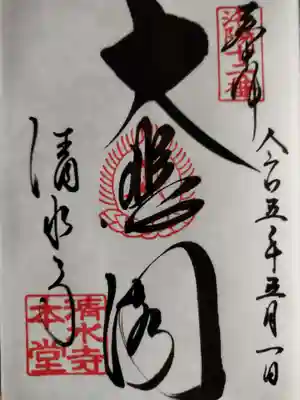 奉拝
令和五年五月一日
大悲閣
清水寺
法然十二番
清水寺
本堂